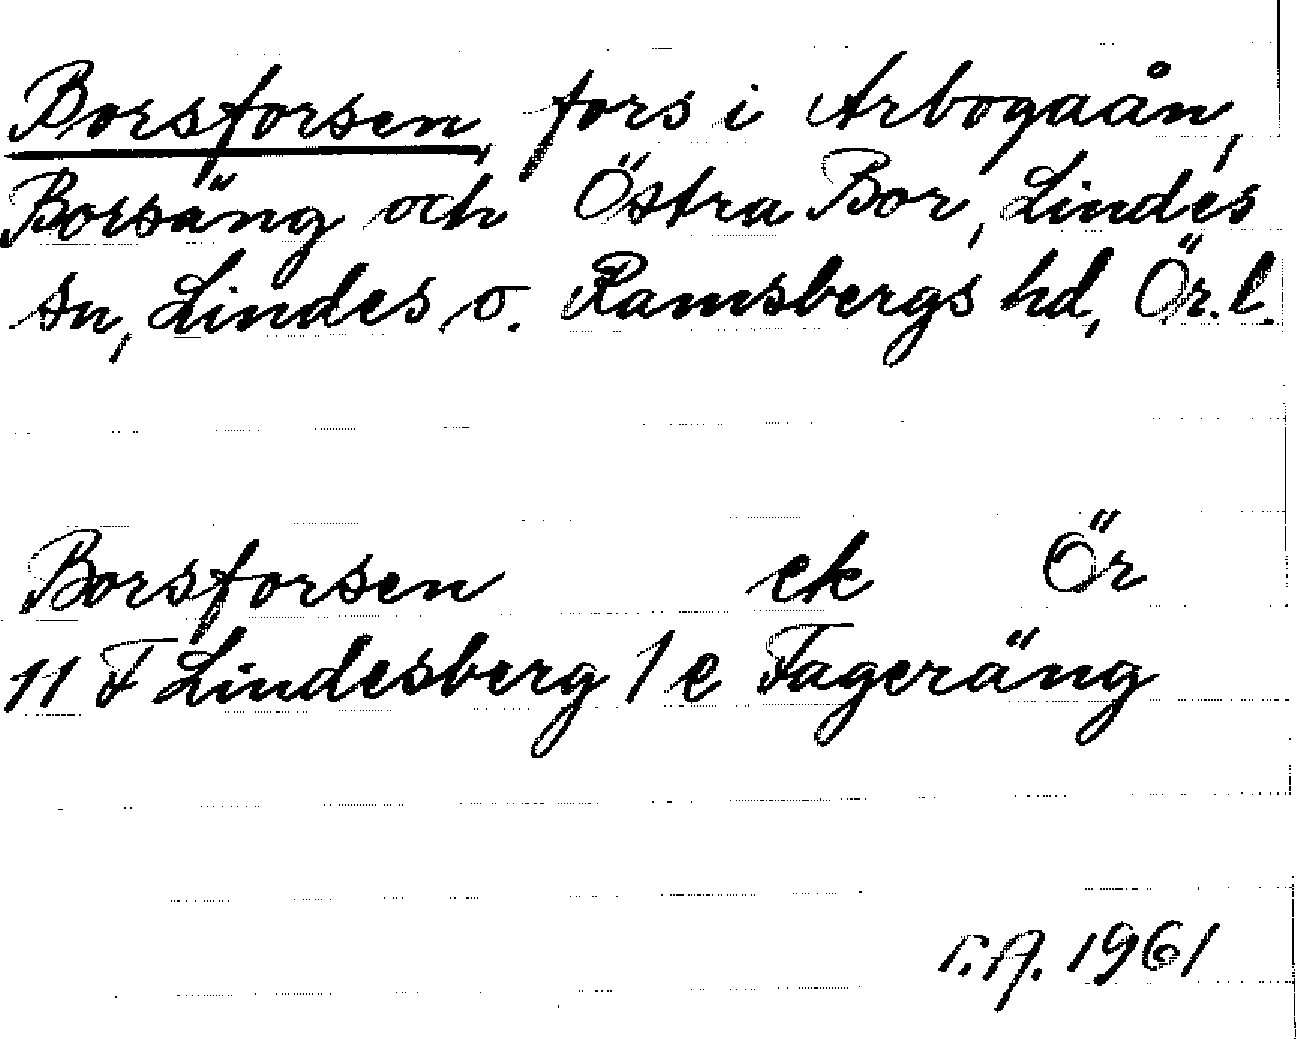 Borsforsen, fors i Arbogaån,
Borsäng och Östra Bor, Lindes
sn, Lindes o. Ramsbergs hd, Ör. l.
Borsforsen ek Ör
11 F Lindesberg 1 e Fageräng
1961